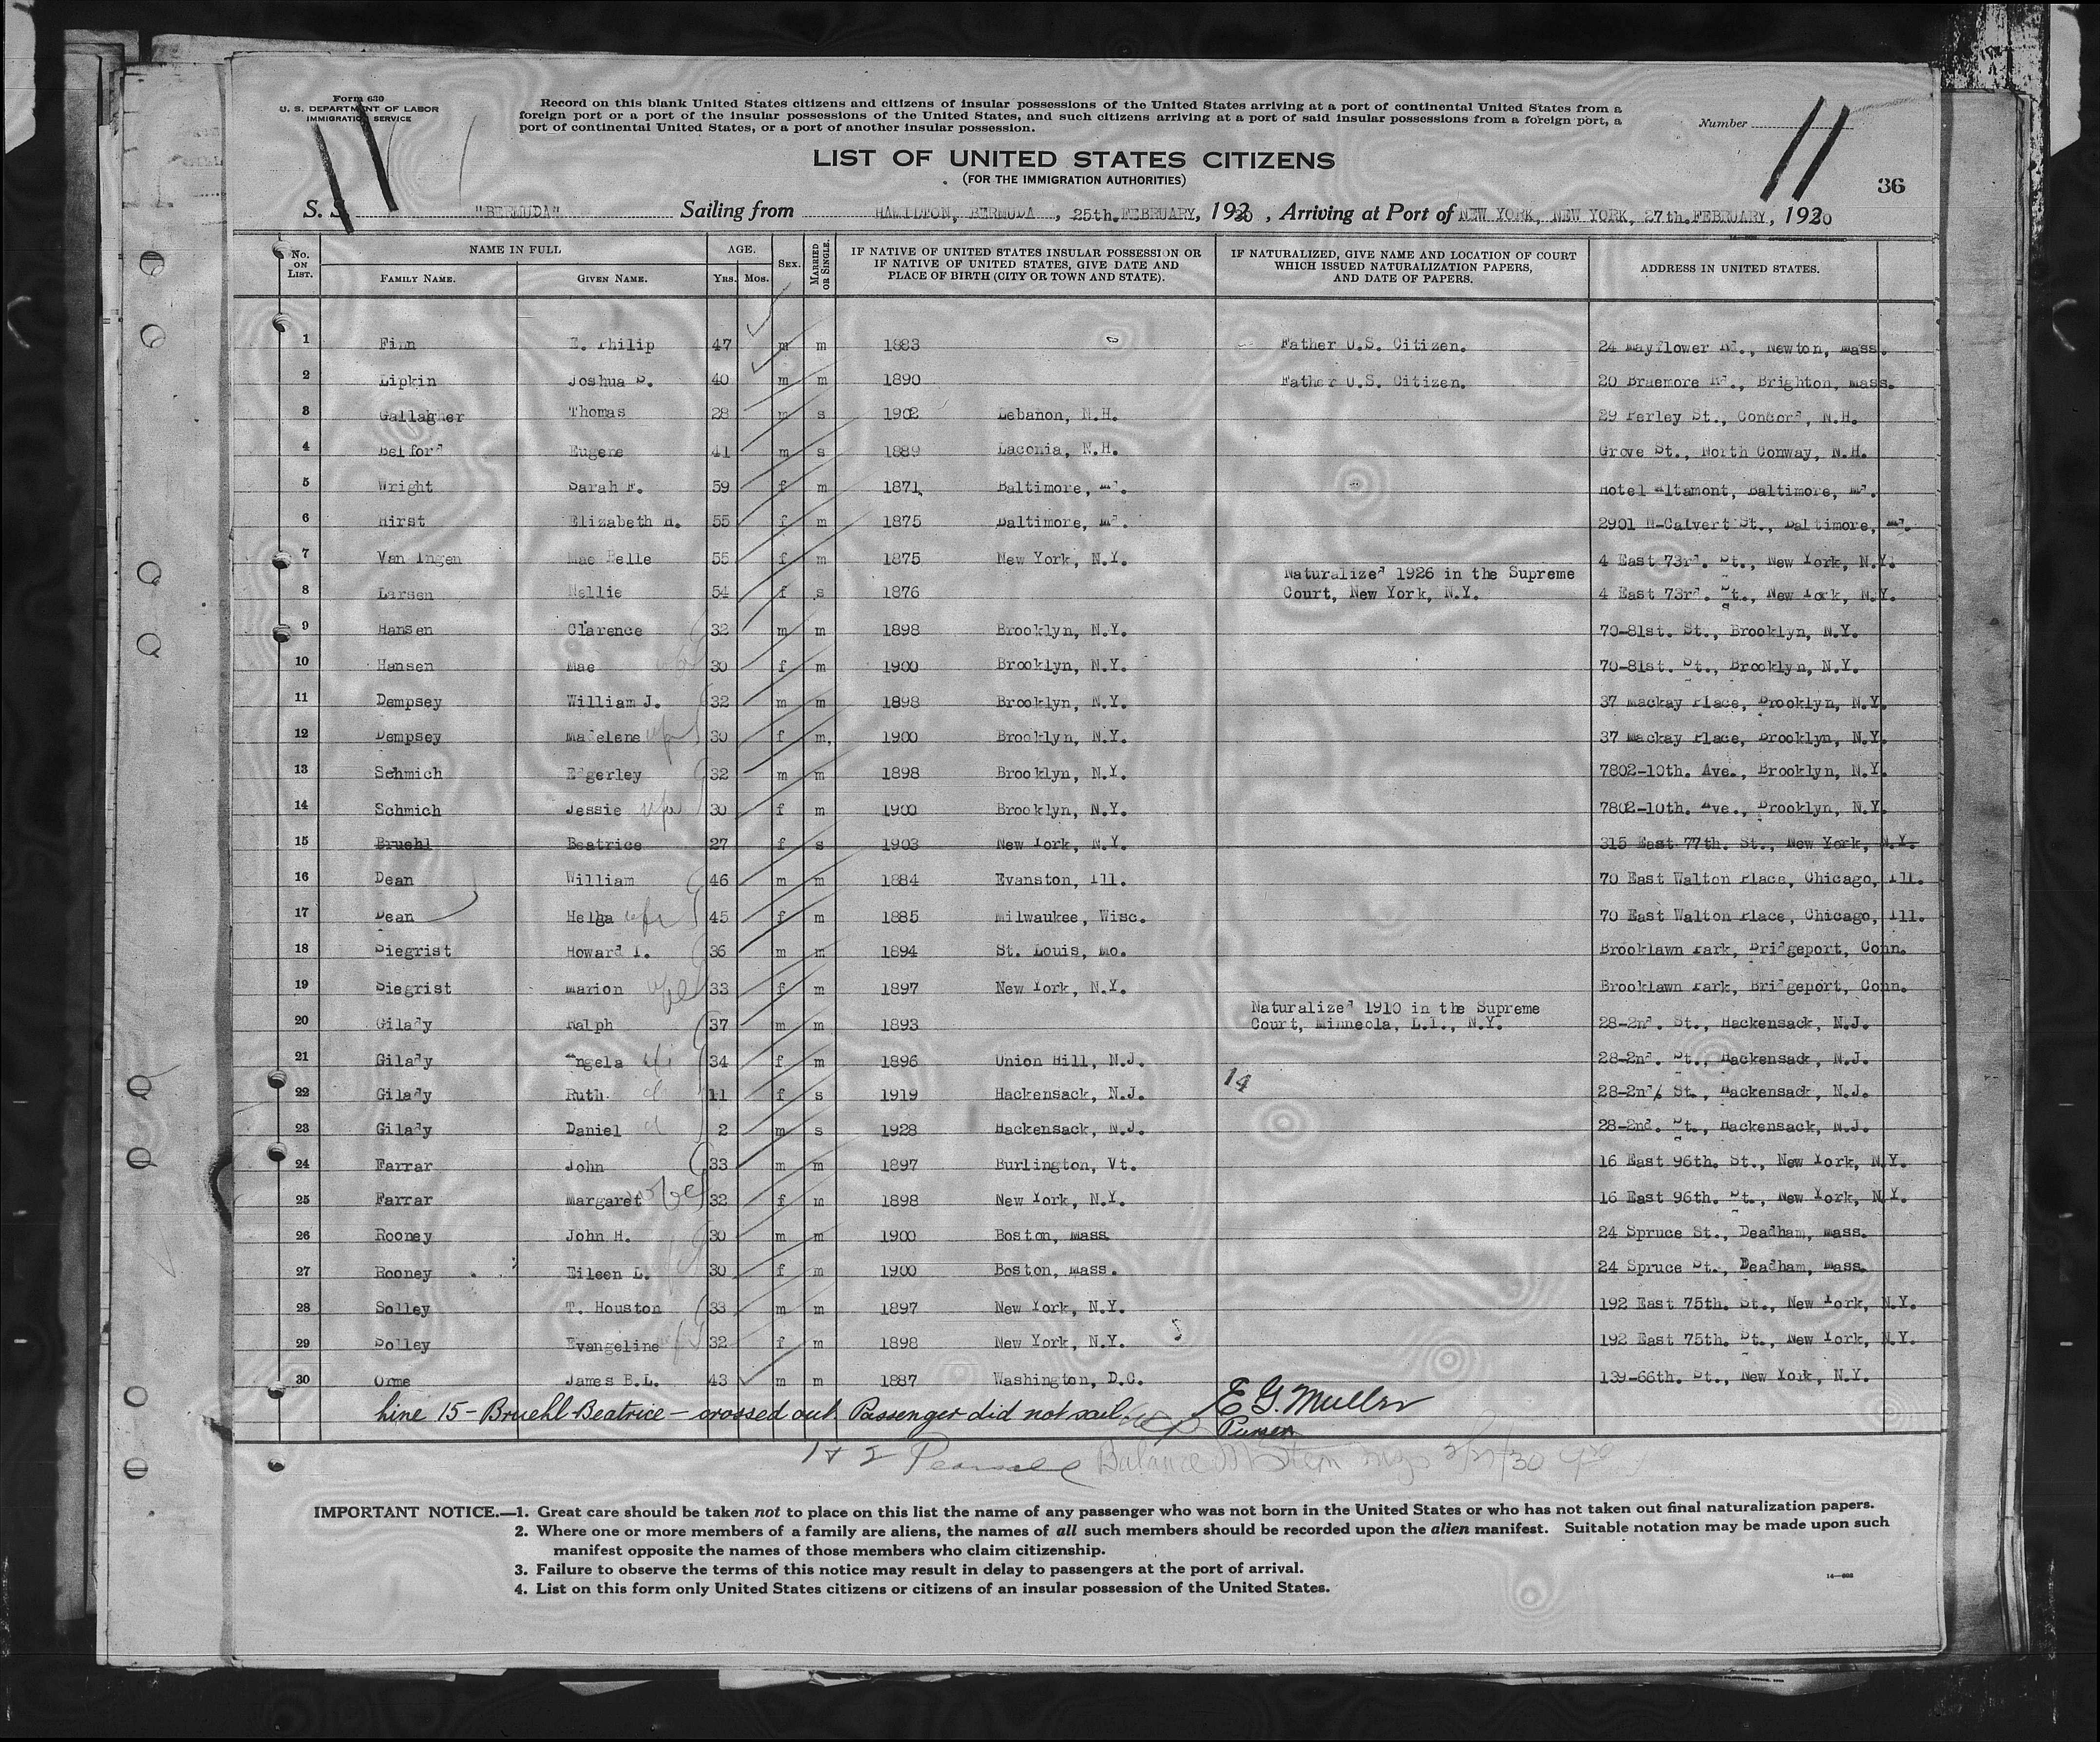 Form 630
U. S. DEPARTMENT OF LABOR
IMMIGRATION SERVICE
Record on this blank United States citizens and citizens of insular possessions of the United States arriving at a port of continental United States from a
foreign port or a port of the insular possessions of the United States, and such citizens arriving at a port of said insular possessions from a foreign port, a
port of continental United States, or a port of another insular possession.
Number
11
11
36
LIST OF UNITED STATES CITIZENS
(FOR THE IMMIGRATION AUTHORITIES)
S. S. "BERMUDA" Sailing from HAMILTON, BERMUDA, 25th. FEBRUARY, 1930, Arriving at Port of NEW YORK, NEW YORK, 27th. FEBRUARY, 1930
No. ON LIST. NAME IN FULL FAMILY NAME. GIVEN NAME. AGE. YRS. MOS. SEX. MARRIED OR SINGLE. IF NATIVE OF UNITED STATES INSULAR POSSESSION OR IF NATIVE OF UNITED STATES, GIVE DATE AND PLACE OF BIRTH (CITY OR TOWN AND STATE). IF NATURALIZED, GIVE NAME AND LOCATION OF COURT WHICH ISSUED NATURALIZATION PAPERS, AND DATE OF PAPERS. ADDRESS IN UNITED STATES.
1 Finn E. Philip 47 m m 1883 Father U.S. Citizen. 24 Mayflower Rd., Newton, Mass.
2 Lipkin Joshua S. 40 m m 1890 Father U.S. Citizen. 20 Braemore Rd., Brighton, Mass.
3 Gallagher Thomas 28 m s 1902 Lebanon, N.H. 29 Perley St., Concord, N.H.
4 Belford Eugene 41 m s 1889 Laconia, N.H. Grove St., North Conway, N.H.
5 Wright Sarah F. 59 f m 1871 Baltimore, Md. Hotel Altamont, Baltimore, Md.
6 Hirst Elizabeth H. 55 f m 1875 Baltimore, Md. 2901 N-Calvert St., Baltimore, Md.
7 Van Ingen Mae Belle 55 f m 1875 New York, N.Y. 4 East 73rd. St., New York, N.Y.
8 Larsen Nellie 54 f s 1876 Naturalized 1926 in the Supreme Court, New York, N.Y. 4 East 73rd. St., New York, N.Y.
9 Hansen Clarence 32 m m 1898 Brooklyn, N.Y. 70-81st. St., Brooklyn, N.Y.
10 Hansen Mae wife 30 f m 1900 Brooklyn, N.Y. 70-81st. St., Brooklyn, N.Y.
11 Dempsey William J. 32 m m 1898 Brooklyn, N.Y. 37 Mackay Place, Brooklyn, N.Y.
12 Dempsey Madelene wife 30 f m. 1900 Brooklyn, N.Y. 37 Mackay Place, Brooklyn, N.Y.
13 Schmich Edgerley 32 m m 1898 Brooklyn, N.Y. 7802-10th. Ave., Brooklyn, N.Y.
14 Schmich Jessie wife 30 f m 1900 Brooklyn, N.Y. 7802-10th. Ave., Brooklyn, N.Y.
15 Bruehl Beatrice 27 f s 1903 New York, N.Y. 315 East 77th. St., New York, N.Y.
16 Dean William 46 m m 1884 Evanston, Ill. 70 East Walton Place, Chicago, Ill.
17 Dean Helga wife 45 f m 1885 Milwaukee, Wisc. 70 East Walton Place, Chicago, Ill.
18 Siegrist Howard I. 36 m m 1894 St. Louis, Mo. Brooklawn Park, Bridgeport, Conn.
19 Siegrist Marion wife 33 f m 1897 New York, N.Y. Brooklawn Park, Bridgeport, Conn.
20 Gilady Ralph 37 m m 1893 Naturalized 1910 in the Supreme Court, Minneola, L.I., N.Y. 28-2nd. St., Hackensack, N.J.
21 Gilady Angela wife 34 f m 1896 Union Hill, N.J. 28-2nd. St., Hackensack, N.J.
22 Gilady Ruth d 11 f s 1919 Hackensack, N.J. 14 28-2nd/ St., Hackensack, N.J.
23 Gilady Daniel 2 m s 1928 Hackensack, N.J. 28-2nd. St., Hackensack, N.J.
24 Farrar John 33 m m 1897 Burlington, Vt. 16 East 96th. St., New York, N.Y.
25 Farrar Margaret wife 32 f m 1898 New York, N.Y. 16 East 96th. St., New York, N.Y.
26 Rooney John H. 30 m m 1900 Boston, Mass 24 Spruce St., Deadham, Mass.
27 Rooney Eileen L. 30 f m 1900 Boston, Mass. 24 Spruce St., Deadham, Mass.
28 Solley T. Houston 33 m m 1897 New York, N.Y. 192 East 75th. St., New York, N.Y.
29 Solley Evangeline wife 32 f m 1898 New York, N.Y. 192 East 75th. St., New York, N.Y.
30 Orme James B.L. 43 m m 1887 Washington, D.C. 139-66th. St., New York, N.Y.
Line 15 - Bruehl Beatrice - crossed out. Passenger did not sail E G. Muller
Purser
1 & 2 Balance
IMPORTANT NOTICE.—1. Great care should be taken not to place on this list the name of any passenger who was not born in the United States or who has not taken out final naturalization papers.
2. Where one or more members of a family are aliens, the names of all such members should be recorded upon the alien manifest. Suitable notation may be made upon such
manifest opposite the names of those members who claim citizenship.
3. Failure to observe the terms of this notice may result in delay to passengers at the port of arrival.
4. List on this form only United States citizens or citizens of an insular possession of the United States.